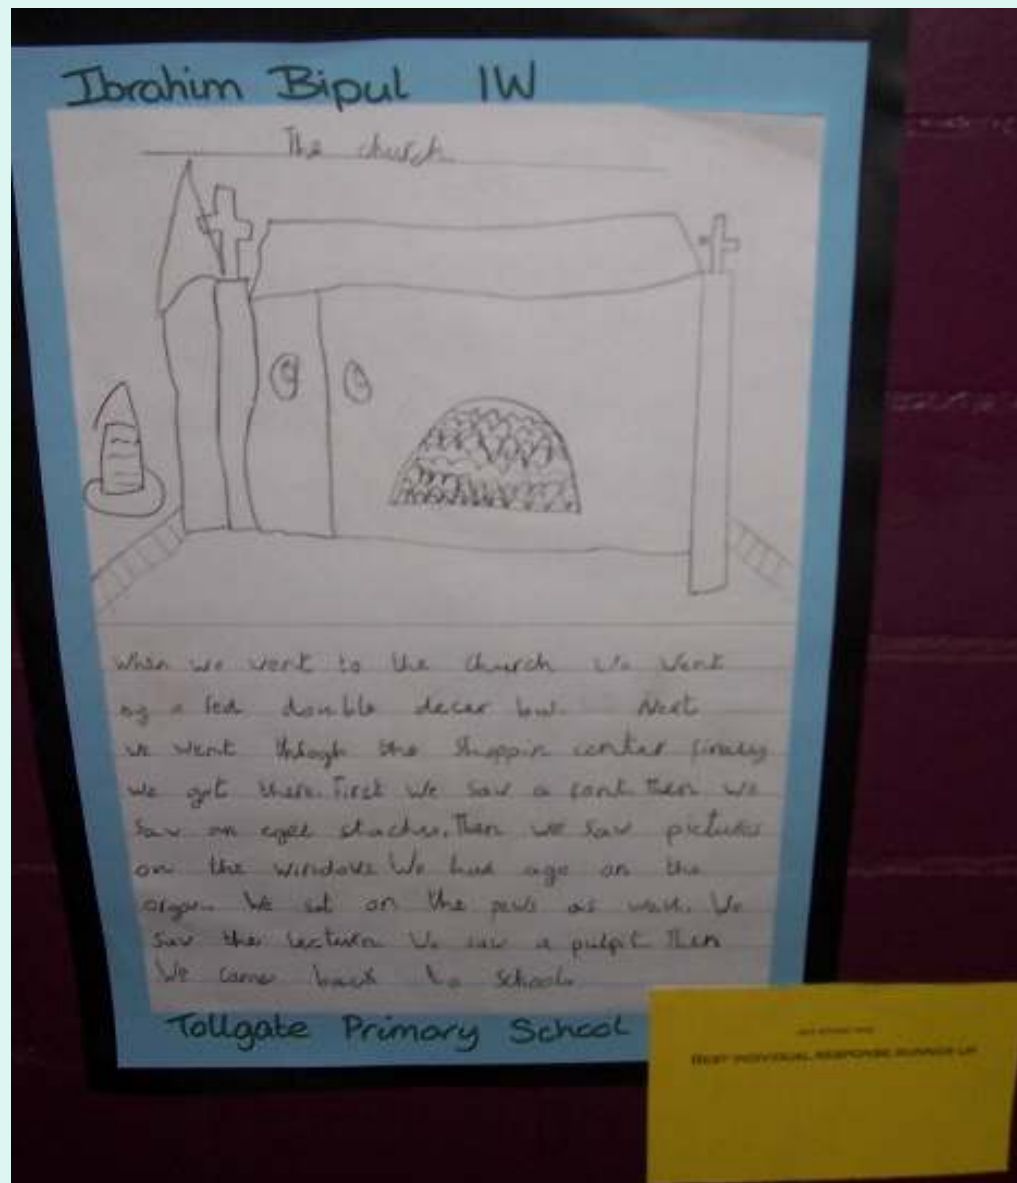 Ibrahim Bipul 1W
The church
When we went to the church we went
a red double decar bus. Next
we went throgh the shoppin center finaly
we got there. First we saw a font Then we
saw an egel . Then we saw pictures
on the windows We had ago on the
organ. We sat on the pews as well. We
saw the lecturn We saw a pulpit Then
We came back to school.
Tollgate Primary School
BEST INDIVIDUAL RESPONSE RUNNER UP